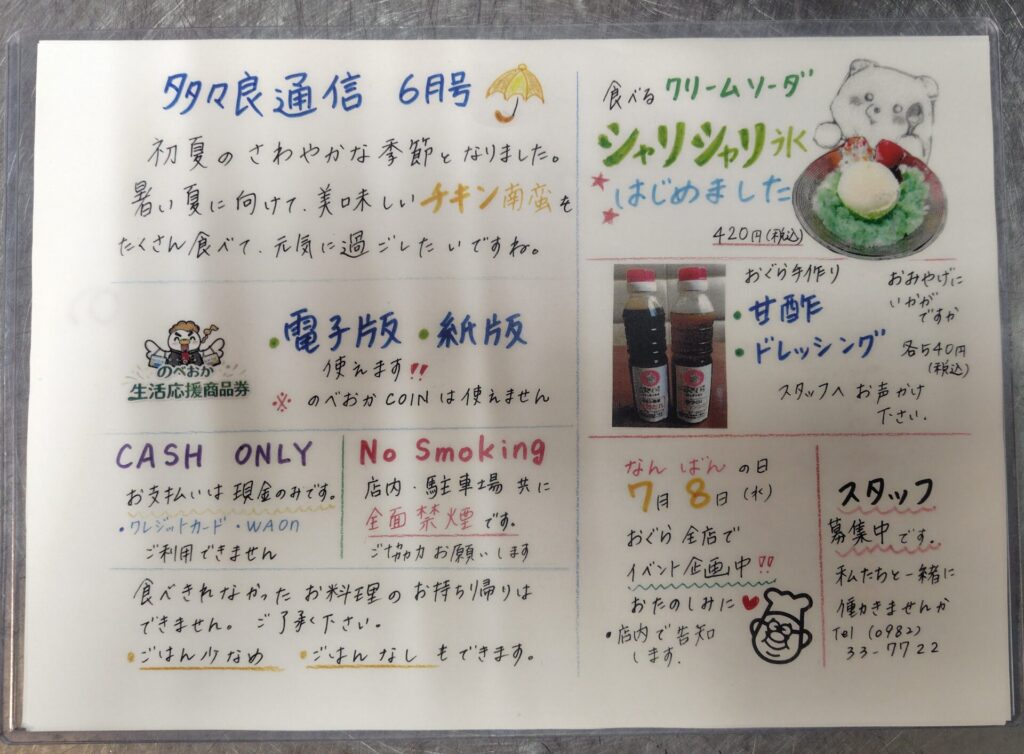 多々良通信 6月号
初夏のさわやかな季節となりました。
暑い夏に向けて、美味しいチキン南蛮を
たくさん食べて、元気に過ごしたいですね。
のべおか
生活応援商品券
・電子版 ・紙版
使えます!!
※ のべおかCOINは使えません
CASH ONLY
お支払いは現金のみです。
・クレジットカード・WAON
ご利用できません
No Smoking
店内・駐車場 共に
全面禁煙です。
ご協力お願いします
食べきれなかったお料理のお持ち帰りは
できません。ご了承下さい。
・ごはん少なめ ・ごはんなしもできます。
食べるクリームソーダ
シャリシャリ氷
はじめました
420円(税込)
おぐら手作り
・甘酢
・ドレッシング
おみやげに
いかが
ですか
各540円
(税込)
スタッフへお声かけ
下さい.
なんばんの日
7月8日(水)
おぐら全店で
イベント企画中!!
おたのしみに
・店内で告知
します.
スタッフ
募集中です。
私たちと一緒に
働きませんか
Tel (0982)
33-7722